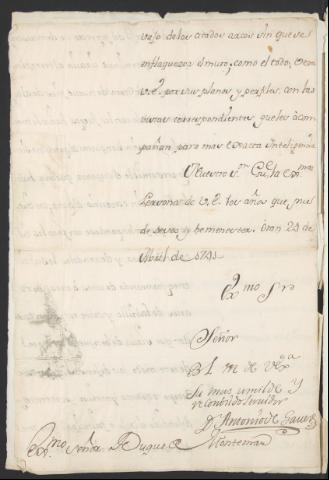 vajo de los citados arcos sin que se
enflaquezca el muro, como el todo, vera
V.E. por sus planos y perfiles, con las
notas correspondientes que les acom-
pañan para mas exacta inteligencia
Nuestro S.or Gu.e la Ex.ma
Persona de V.E. los años que mas
deseo y he menester. Oran 29 de
Abril de 1741
Ex.mo S.or
Señor
B L M de V.Ex.a
Su mas umilde y
rendido servidor
D. Antonio de Gaver
Ex.mo Señor Duque de Montemar